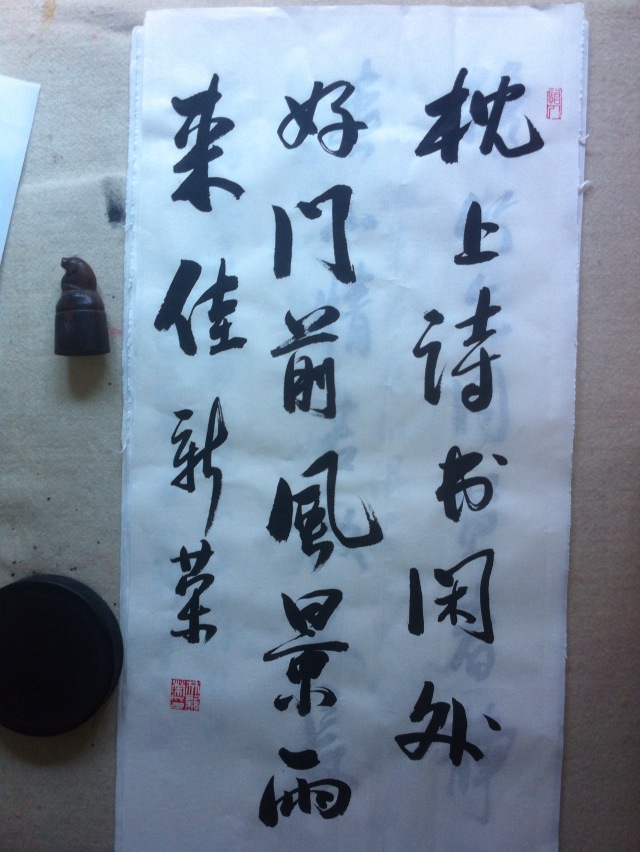 枕上诗书闲处
好门前風景雨
来佳新荣